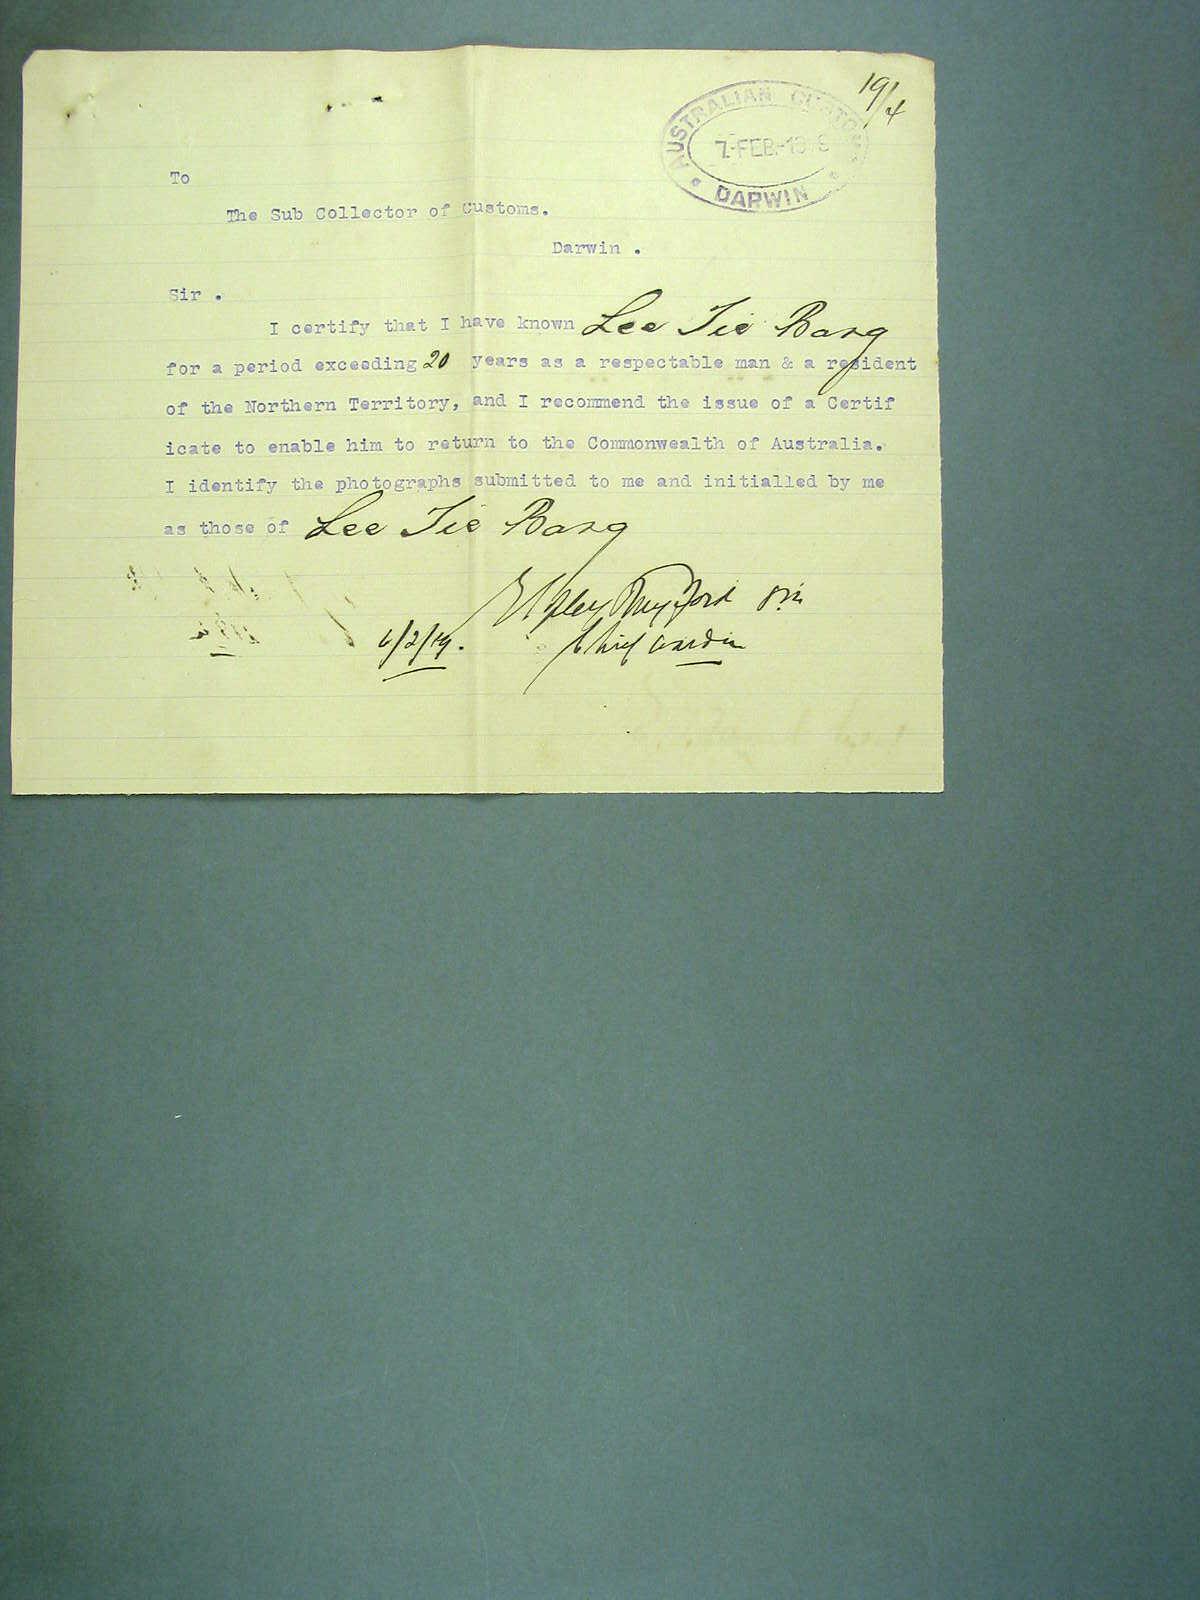 19/4
AUSTRALIAN CUSTOMS
7-FEB-19
DARWIN
To
The Sub Collector of Customs.
Darwin .
Sir .
I certify that I have known Lee Tie Bang
for a period exceeding 20 years as a respectable man & a resident
of the Northern Territory, and I recommend the issue of a Certif
icate to enable him to return to the Commonwealth of Australia.
I identify the photographs submitted to me and initialled by me
as those of Lee Tie Bang
6/2/19.
Chief Warden